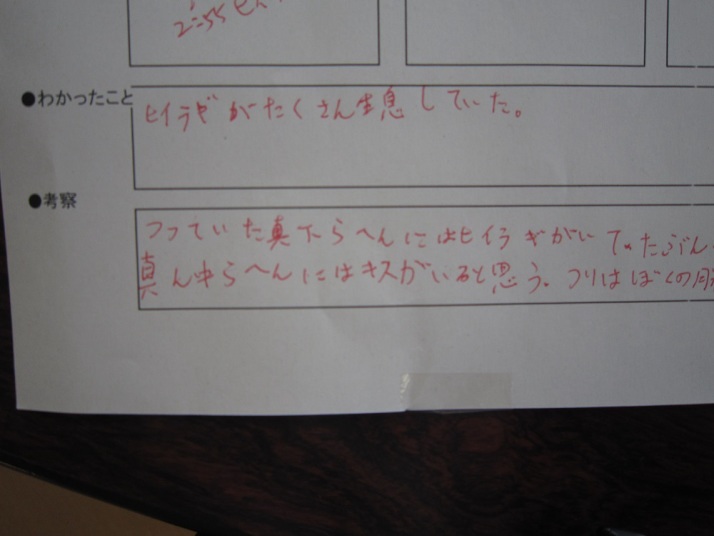 2=55
●わかったこと
ヒイラギがたくさん生息していた。
●考察
つっていた真下らへんにはヒイラギがいて、たぶん
真ん中らへんにはキスがいると思う。つりはぼくの